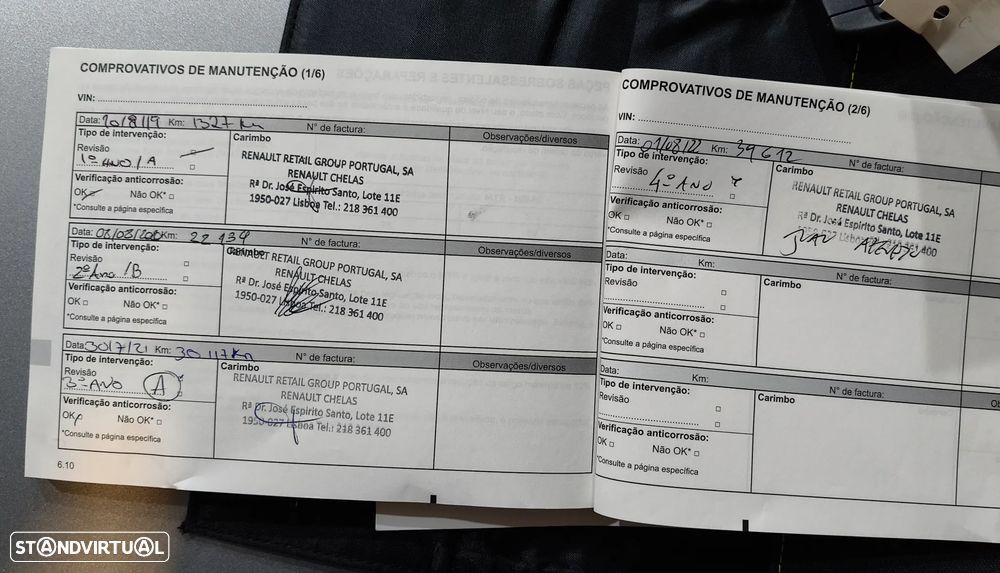 COMPROVATIVOS DE MANUTENÇÃO (1/6)
VIN:
Data: 20/8/19 Km: 1327 Km N° de factura: Observações/diversos
Tipo de intervenção:
Revisão
1º ANO / A
Verificação anticorrosão:
OK Não OK*
*Consulte a página específica
Carimbo
RENAULT RETAIL GROUP PORTUGAL, SA
RENAULT CHELAS
Rª Dr. José Espirito Santo, Lote 11E
1950-027 Lisboa Tel.: 218 361 400
Data: Km: 22 134 N° de factura: Observações/diversos
Tipo de intervenção:
Revisão
2º Ano /B
Verificação anticorrosão:
OK Não OK*
*Consulte a página específica
Carimbo
RENAULT RETAIL GROUP PORTUGAL, SA
RENAULT CHELAS
Rª Dr. José Espirito Santo, Lote 11E
1950-027 Lisboa Tel.: 218 361 400
Data: 30/7/21 Km: 30 117 Km N° de factura: Observações/diversos
Tipo de intervenção:
Revisão
3º ANO A
Verificação anticorrosão:
OK Não OK*
*Consulte a página específica
Carimbo
RENAULT RETAIL GROUP PORTUGAL, SA
RENAULT CHELAS
Rª Dr. José Espirito Santo, Lote 11E
1950-027 Lisboa Tel.: 218 361 400
6.10
COMPROVATIVOS DE MANUTENÇÃO (2/6)
VIN:
Data: 01/08/22 Km: 39 612 N° de factura:
Tipo de intervenção:
Revisão
4º ANO
Verificação anticorrosão:
OK Não OK*
*Consulte a página específica
Carimbo
RENAULT RETAIL GROUP PORTUGAL, SA
RENAULT CHELAS
Rª Dr. José Espirito Santo, Lote 11E
1950-027 Lisboa Tel.: 218 361 400
Data: Km: N° de factura:
Tipo de intervenção:
Revisão
Verificação anticorrosão:
OK Não OK*
*Consulte a página específica
Carimbo
Data: Km: N° de factura: Ob
Tipo de intervenção:
Revisão
Verificação anticorrosão:
OK Não OK*
*Consulte a página específica
Carimbo
STANDVIRTUAL